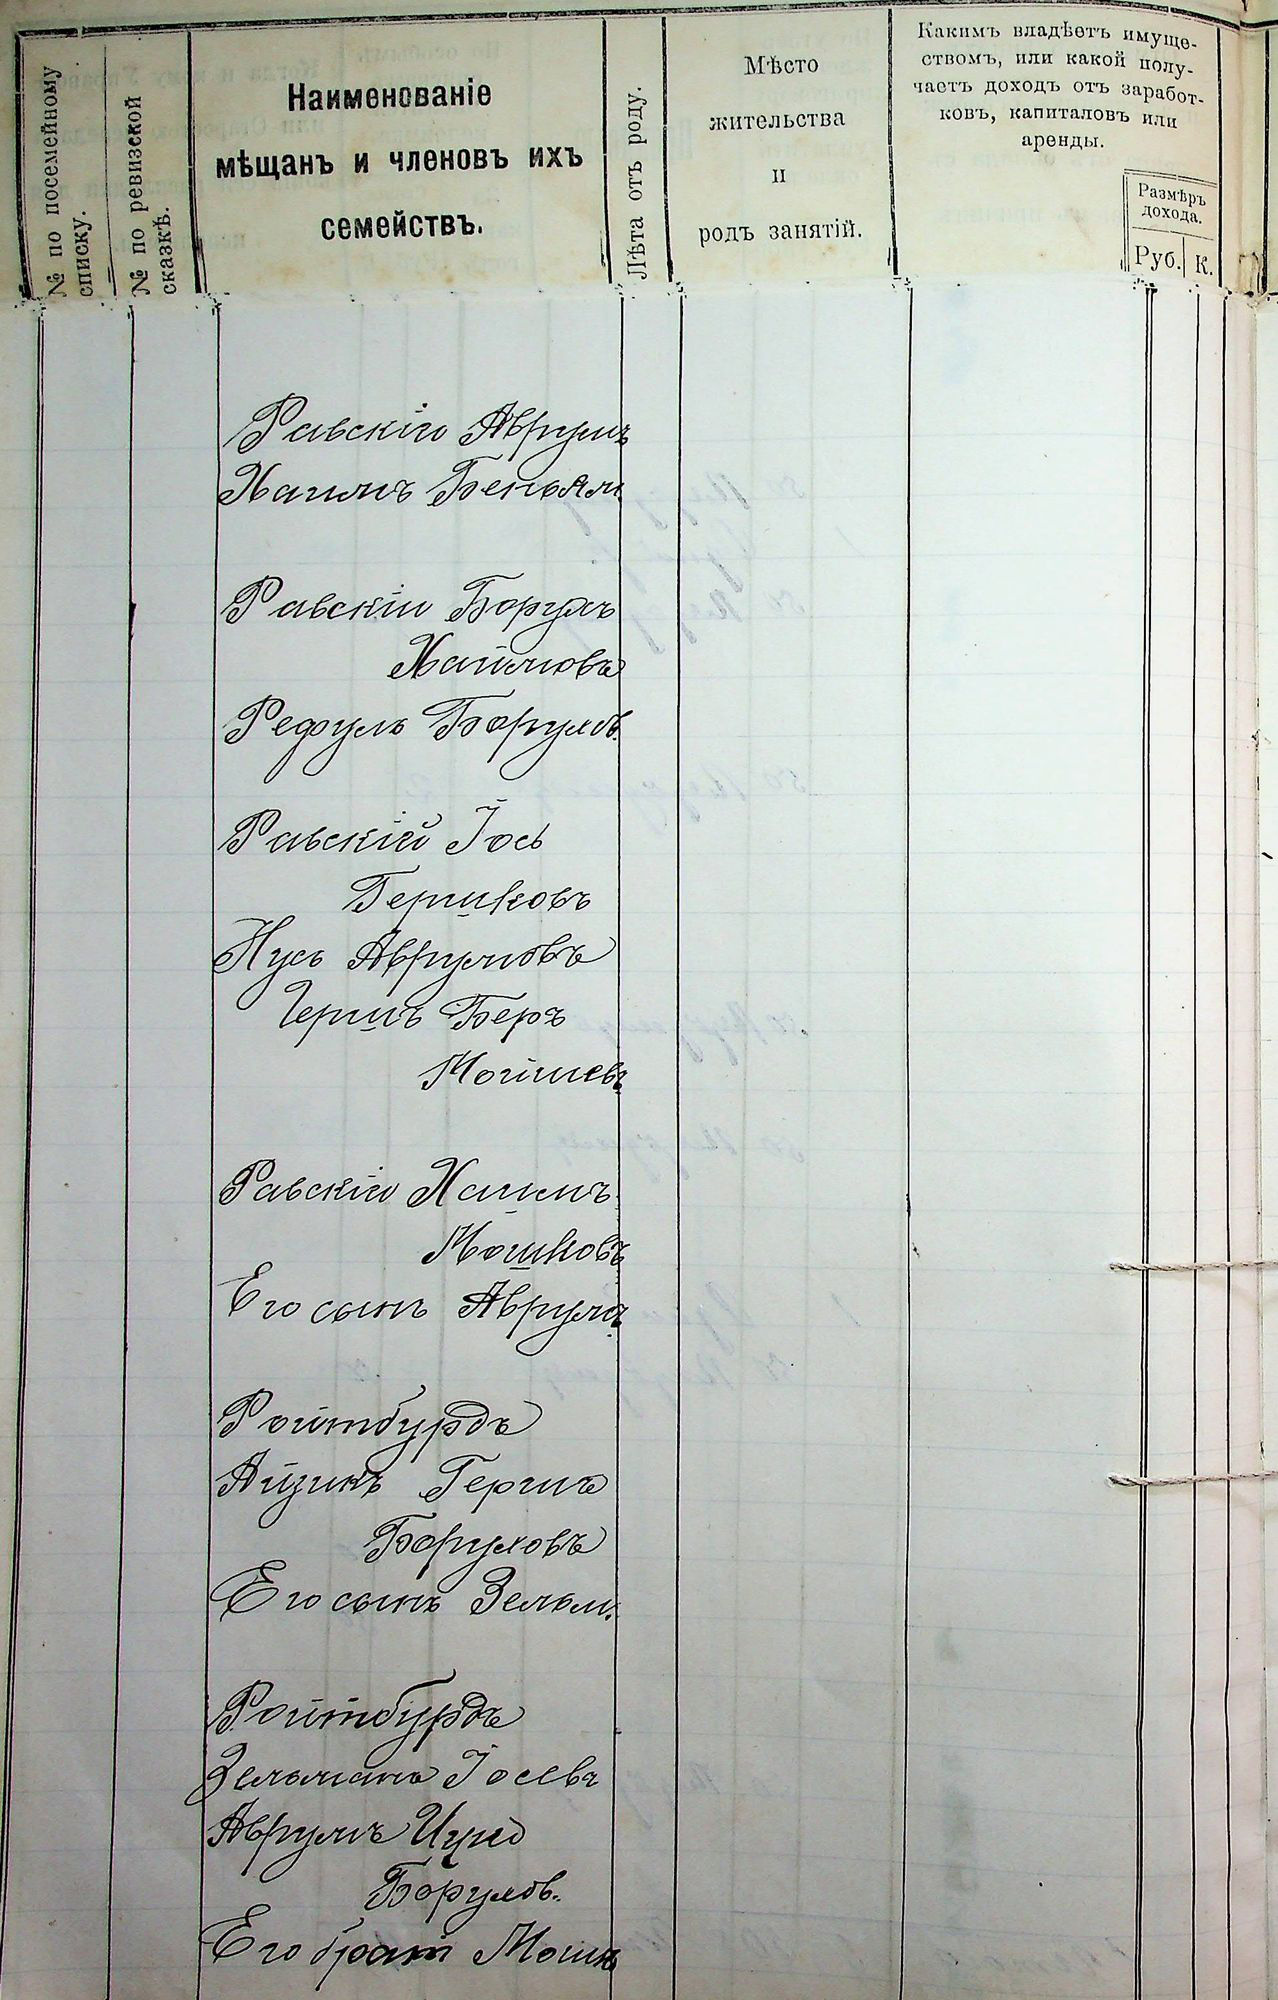 № по посемейному
списку.
№ по ревизской
сказкѣ.
Наименованіе
мѣщанъ и членовъ ихъ
семействъ.
Лѣта отъ роду.
Мѣсто
жительства
и
родъ занятій.
Какимъ владѣетъ имуще-
ствомъ, или какой полу-
чаетъ доходъ отъ заработ-
ковъ, капиталовъ или
аренды.
Размѣръ
дохода.
Руб.
К.
Равскій Аврумъ
Хаимъ Беньям.
Равскій Борухъ
Хаймовъ
Рефулъ Борухов.
Равскій Іось
Гершковъ
Нусь Аврумовъ
Гершъ Беръ
Мошевъ
Равскій Хаимъ
Мошковъ
Его сынъ Аврумъ
Ройтбурдъ
Айзикъ Гершъ
Боруховъ
Его сынъ Зельм.
Ройтбурдъ
Зельманъ Іосевъ
Аврумъ Ицко
Борухов.
Его братъ